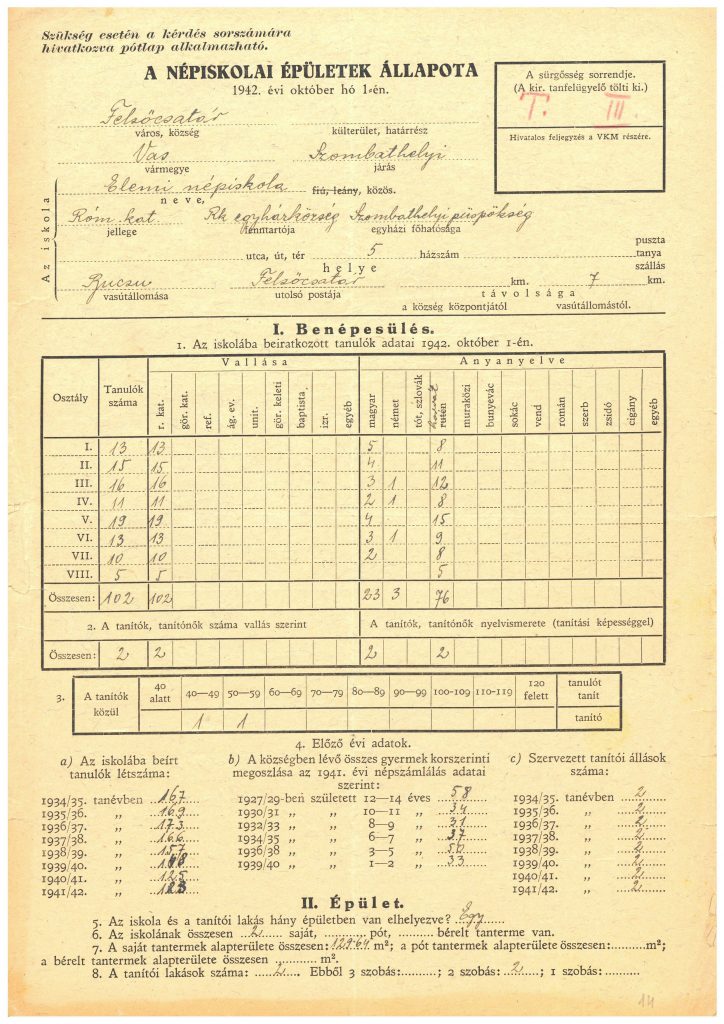 Szükség esetén a kérdés sorszámára
hivatkozva pótlap alkalmazható.
A NÉPISKOLAI ÉPÜLETEK ÁLLAPOTA
1942. évi október hó 1-én.
A sürgősség sorrendje.
(A kir. tanfelügyelő tölti ki.)
I. III.
Hivatalos feljegyzés a VKM részére.
Felsőcsatár
város, község külterület, határrész
Vas Szombathelyi
vármegye járás
Az iskola
Elemi népiskola fiú, leány, közös.
neve,
Róm. kat. Rk egyházközség Szombathelyi püspökség
jellege fenntartója egyházi főhatósága
utca, út, tér 5 házszám puszta tanya szállás
helye
Bucsu Felsőcsatár km. 7 km.
vasútállomása utolsó postája távolsága
a község központjától vasútállomástól.
I. Benépesülés.
1. Az iskolába beiratkozott tanulók adatai 1942. október 1-én.
Osztály Tanulók száma Vallása Anyanyelve
r. kat. gör. kat. ref. ág. ev. unit. gör. keleti baptista izr. egyéb magyar német tót, szlovák horvát rutén muraközi bunyevác sokác vend román szerb zsidó cigány egyéb
I. 13 13 5 8
II. 15 15 4 11
III. 16 16 3 1 12
IV. 11 11 2 1 8
V. 19 19 4 15
VI. 13 13 3 1 9
VII. 10 10 2 8
VIII. 5 5 5
Összesen: 102 102 23 3 76
2. A tanítók, tanítónők száma vallás szerint A tanítók, tanítónők nyelvismerete (tanítási képességgel)
Összesen: 2 2 2 2
3. A tanítók közül 40 alatt 40—49 50—59 60—69 70—79 80—89 90—99 100-109 110-119 120 felett tanulót tanít
1 1 tanító
4. Előző évi adatok.
a) Az iskolába beírt tanulók létszáma:
1934/35. tanévben 167
1935/36. „ 169
1936/37. „ 173
1937/38. „ 166
1938/39. „ 157
1939/40. „
1940/41. „ 125
1941/42. „
b) A községben lévő összes gyermek korszerinti
megoszlása az 1941. évi népszámlálás adatai
szerint:
1927/29-ben született 12—14 éves 58
1930/31 „ „ 10—11 „ 34
1932/33 „ „ 8—9 „ 31
1934/35 „ „ 6—7 „ 37
1936/38 „ „ 3—5 „ 50
1939/40 „ „ 1—2 „ 33
c) Szervezett tanítói állások
száma:
1934/35. tanévben 2
1935/36. „ 2
1936/37. „ 2
1937/38. „ 2
1938/39. „ 2
1939/40. „ 2
1940/41. „ 2
1941/42. „ 2
II. Épület.
5. Az iskola és a tanítói lakás hány épületben van elhelyezve? Egy
6. Az iskolának összesen 2 saját, pót, bérelt tanterme van.
7. A saját tantermek alapterülete összesen: 129.64 m²; a pót tantermek alapterülete összesen: m²;
a bérelt tantermek alapterülete összesen m².
8. A tanítói lakások száma: 2. Ebből 3 szobás: ; 2 szobás: 2 ; 1 szobás:
14